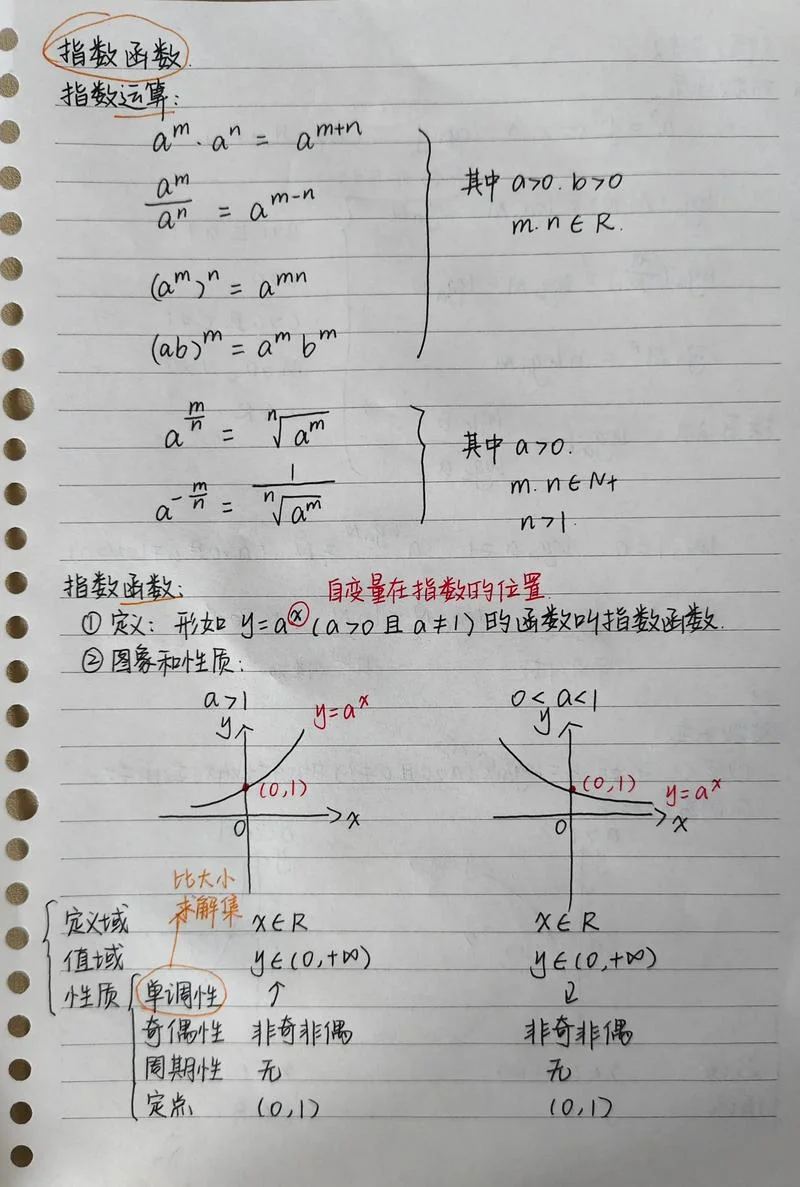 指数函数.
指数运算:
a^m · a^n = a^{m+n}
a^m/a^n = a^{m-n}
其中 a>0. b>0
m. n∈R.
(a^m)^n = a^{mn}
(ab)^m = a^m b^m
a^{m/n} = ⁿ√(a^m)
a^{-m/n} = 1/ⁿ√(a^m)
其中 a>0.
m. n∈N+
n>1.
指数函数:
自变量在指数的位置.
① 定义: 形如 y=a^x (a>0 且 a≠1) 的函数叫指数函数.
② 图象和性质:
a>1
0<a<1
y
y=a^x
(0,1)
0
x
y
(0,1)
y=a^x
0
x
比大小
求解集
定义域 x∈R x∈R
值域 y∈(0,+∞) y∈(0,+∞)
性质 单调性 ↑ ↓
奇偶性 非奇非偶 非奇非偶
周期性 无 无
定点 (0,1) (0,1)